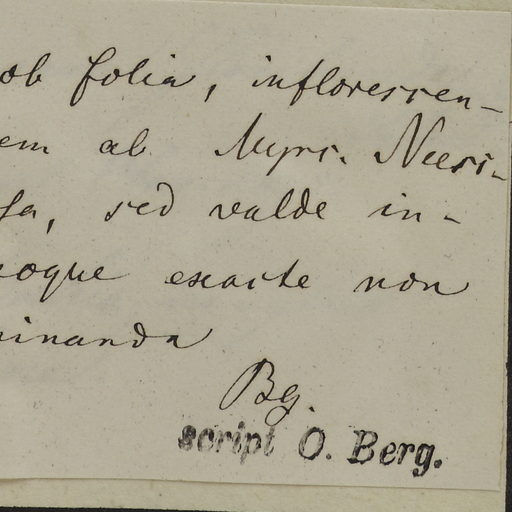 ob folia, inflorescen-
em ab Myrs. Neesi-
sa, sed valde in-
oque exacte non
inanda
Bg.
script O. Berg.